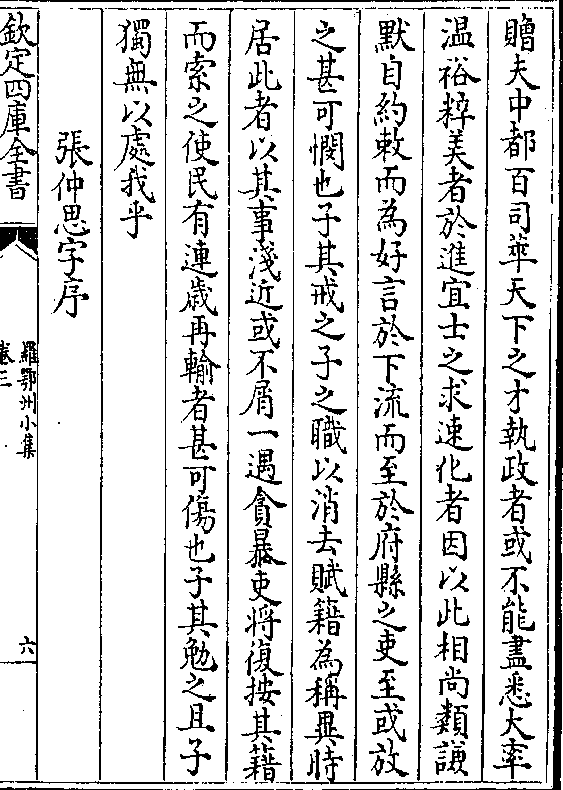 贈夫中都百司萃天下之才執政者或不能盡悉大率
温裕粹美者於進宜士之求速化者因以此相尚類謙
默自約敕而為好言於下流而至於府縣之吏至或放
之甚可憫也子其戒之子之職以消去賦籍為稱異時
居此者以其事淺近或不屑一遇貪暴吏将復按其籍
而索之使民有連歲再輸者甚可傷也子其勉之且子
獨無以處我乎
張仲思字序
欽定四庫全書
羅鄂州小集
卷三
六